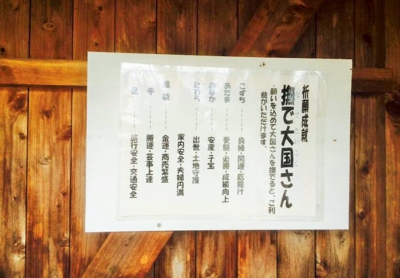 祈願成就
撫で大国さん
願いを込めて大国さんを撫でると、ご利
益がいただけます。
こずち……良縁・開運・厄除け
あたま……受験・必勝・成績向上
おなか……安産・子宝
たわら……出世・土地守護
家内安全・夫婦円満
金運・商売繁盛
手……勝運・芸事上達
足……旅行安全・交通安全